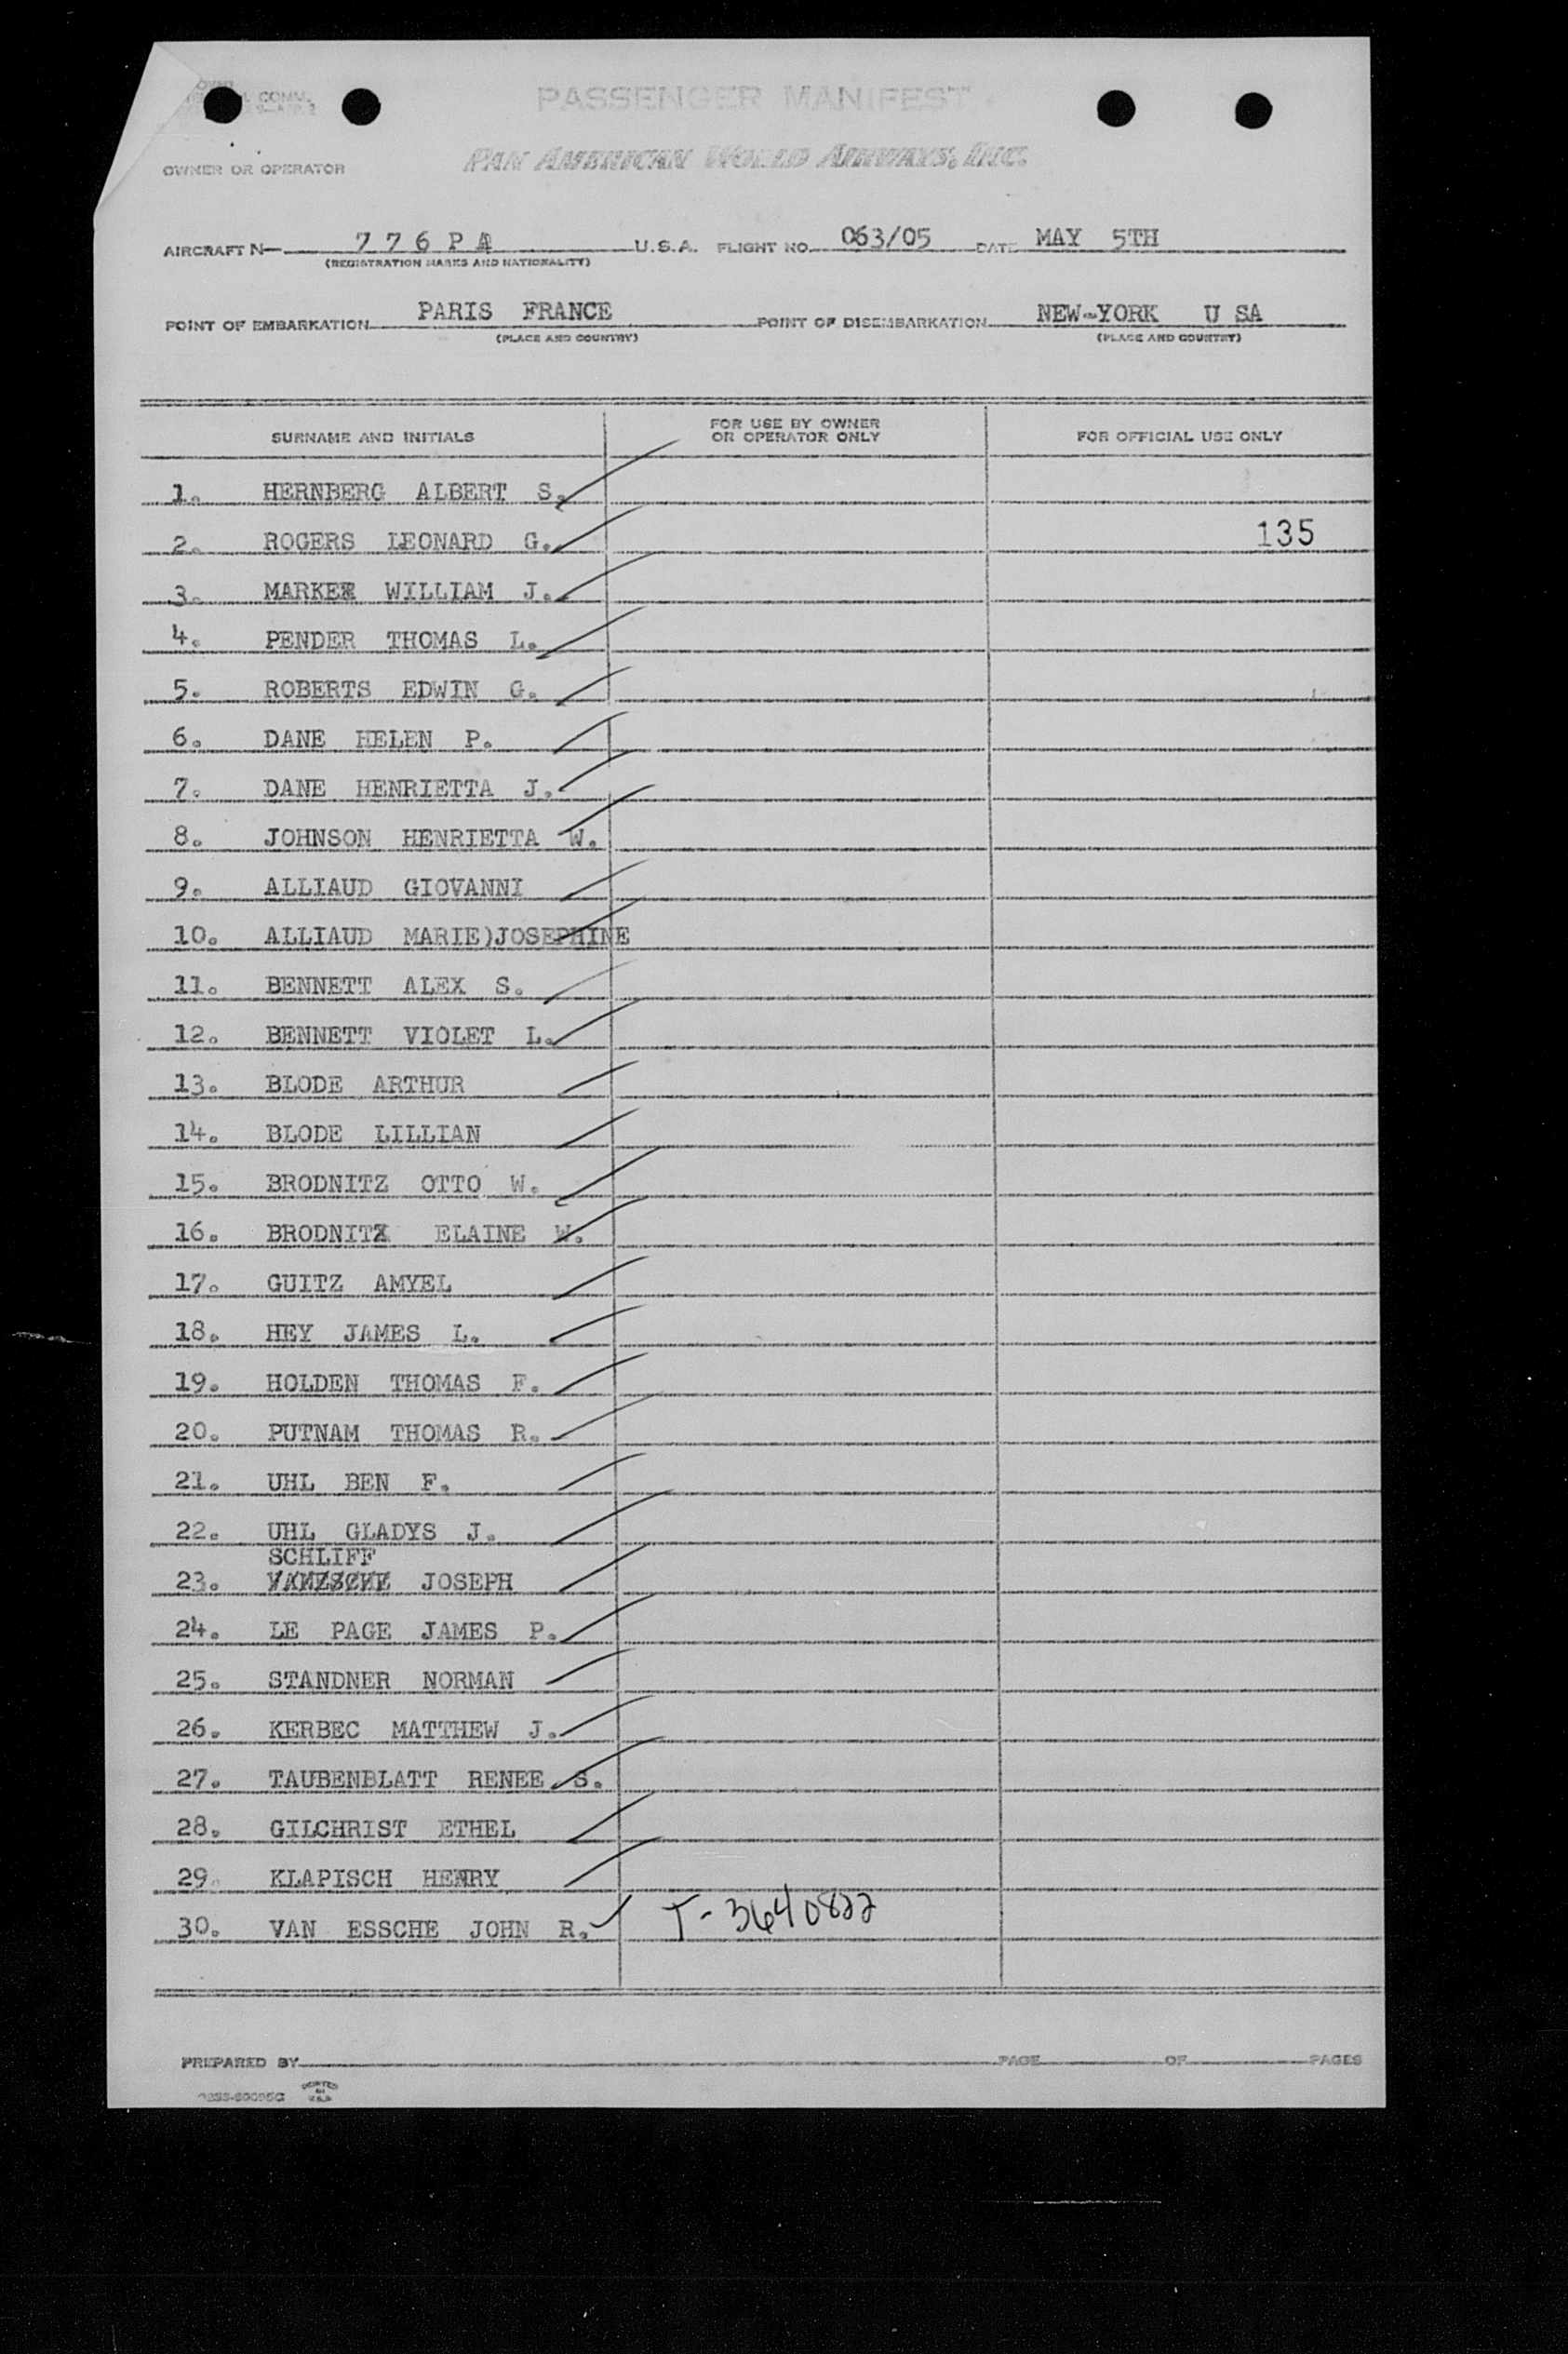 PASSENGER MANIFEST
OWNER OR OPERATOR PAN AMERICAN WORLD AIRWAYS, INC.
AIRCRAFT N— 776PA U.S.A. FLIGHT NO. 063/05 DATE MAY 5TH
(REGISTRATION MARKS AND NATIONALITY)
POINT OF EMBARKATION PARIS FRANCE POINT OF DISEMBARKATION NEW-YORK U SA
(PLACE AND COUNTRY) (PLACE AND COUNTRY)
SURNAME AND INITIALS FOR USE BY OWNER OR OPERATOR ONLY FOR OFFICIAL USE ONLY
1. HERNBERG ALBERT S.
2. ROGERS LEONARD G. 135
3. MARKEE WILLIAM J.
4. PENDER THOMAS L.
5. ROBERTS EDWIN G.
6. DANE HELEN P.
7. DANE HENRIETTA J.
8. JOHNSON HENRIETTA W.
9. ALLIAUD GIOVANNI
10. ALLIAUD MARIE)JOSEPHINE
11. BENNETT ALEX S.
12. BENNETT VIOLET L.
13. BLODE ARTHUR
14. BLODE LILLIAN
15. BRODNITZ OTTO W.
16. BRODNITZ ELAINE W.
17. GUITZ AMYEL
18. HEY JAMES L.
19. HOLDEN THOMAS F.
20. PUTNAM THOMAS R.
21. UHL BEN F.
22. UHL GLADYS J.
SCHLIFF
23. JOSEPH
24. LE PAGE JAMES P.
25. STANDNER NORMAN
26. KERBEC MATTHEW J.
27. TAUBENBLATT RENEE S.
28. GILCHRIST ETHEL
29. KLAPISCH HENRY
30. VAN ESSCHE JOHN R. T-3640822
PREPARED BY PAGE OF PAGES
PRINTED IN U.S.A.